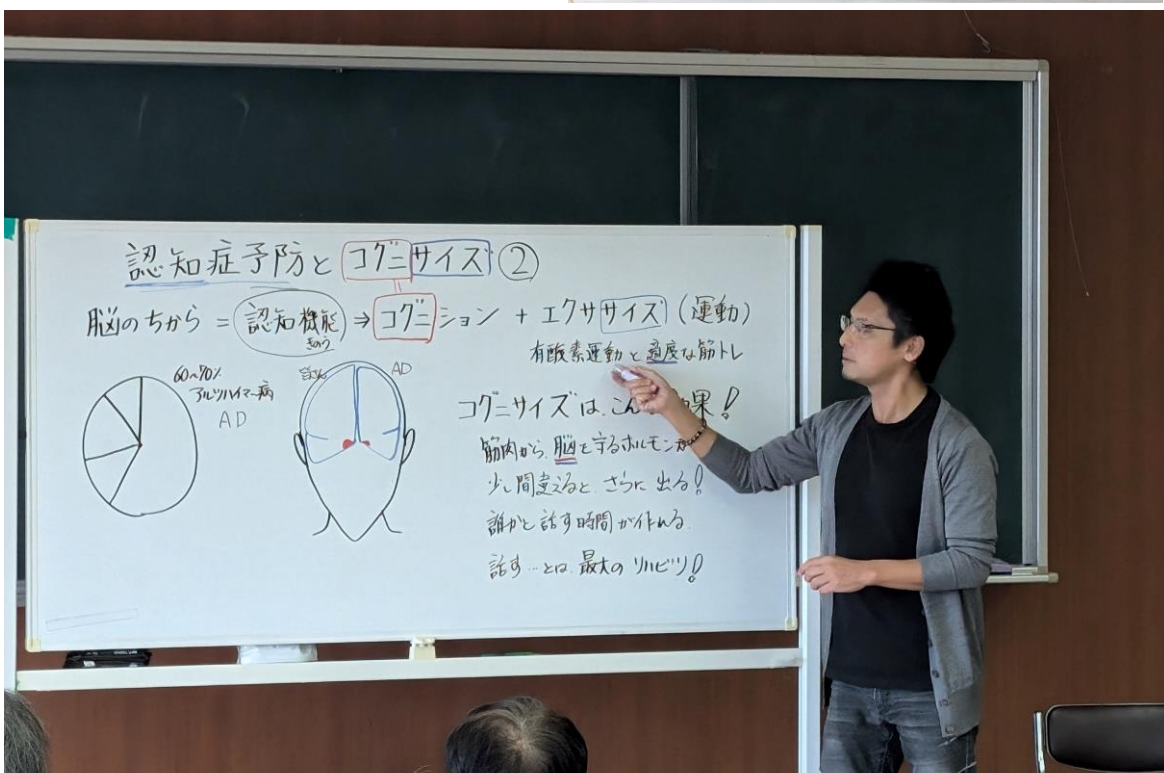 認知症予防とコグニサイズ②
脳のちから = 認知機能 ⇒ コグニション + エクササイズ (運動)
きのう
有酸素運動と適度な筋トレ
60~70%
アルツハイマー病
AD
AD
コグニサイズは、こん 果!
筋肉から、脳を守るホルモンが
少し間違えると、さらに出る!
誰かと話す時間が作れる
話す…とは、最大のリハビリ!